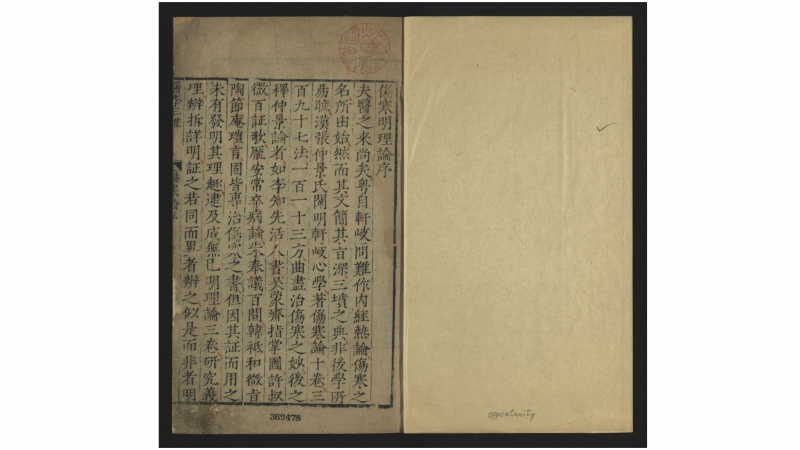 傷寒明理論序
夫醫之来尚矣粤自軒岐問難作内經熱論傷寒之
名所由始然而其文簡其旨深三墳之典非後學所
易職漢張仲景氏闡明軒岐心學著傷寒論十卷三
百九十七法一百一十三方曲盡治傷寒之妙後之
釋仲景論者如李知先活人書吴蒙齋指掌圖許叔
微百証歌龐安常卒病論朱奉議百問韓祗和微旨
陶節庵瑣言固皆專治傷寒之書但因其証而用之
未有發明其理趣逮及成無已明理論三卷研究義
理辨拆詳明証之若同而異者辨之似是而非者明
369478
opportunity